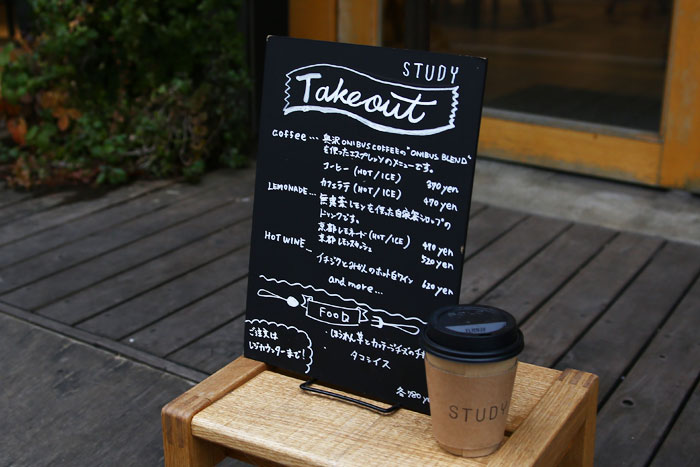 STUDY
Takeout
Coffee... 奥沢ONIBUS COFFEEの"ONIBUS BLEND"
を使ったエスプレッソのメニューです。
コーヒー (HOT/ICE) 390 yen
カフェラテ (HOT/ICE) 490 yen
LEMONADE... 無農薬レモンを使った自家製シロップの
ドリンクです。
京都レモネード (HOT/ICE) 490 yen
京都レモンスカッシュ 520 yen
HOT WINE...
イチジクとみかんのホット白ワイン 620 yen
and more...
FOOD
ご注文は
レジカウンターまで!
・ほうれん草とカッテージチーズの
タコライス
各980
STUDY